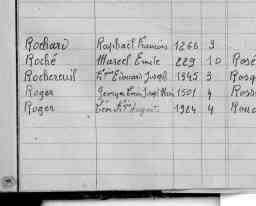 Rochard Raphaël Francois 1266 3
Roché Marcel Emile 229 10 Rosé
Rochereuil Edouard Joseph 1945 3 Rosq
Roger Georges Emile Joseph 1501 4 Ross
Roger Léon August. 1924 4